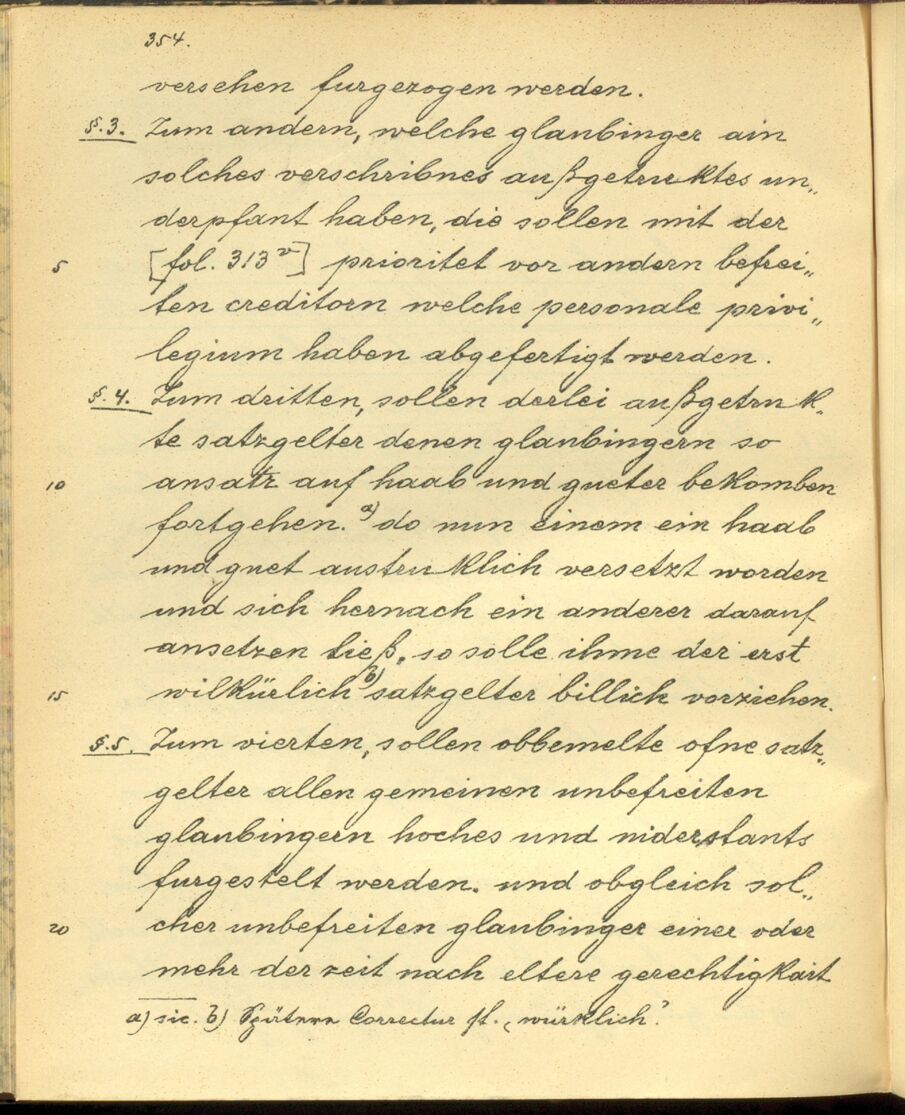 354.
versehen furgezogen werden.
§.3. Zum andern, welche glaubinger ain
solches verschribnes außgetruktes un„
derpfant haben, die sollen mit der
5 [fol. 313v] prioritet vor andern befrei„
ten creditorn welche personale privi„
legium haben abgefertigt werden.
§.4. Zum dritten, sollen derlei außgetruk„
te satzgelter denen glaubingern so
10 ansatz auf haab und gueter bekomben
fortgehen. a) do nun einem ein haab
und guet austruklich versetzt worden
und sich hernach ein anderer darauf
ansetzen ließ, so solle ihme der erst
15 wilkürlich b) satzgelter billich vorziehen.
§.5. Zum vierten, sollen obbemelte ofne satz„
gelter allen gemeinen unbefreiten
glaubingern hoches und niderstants
furgestelt werden. und obgleich sol„
20 cher unbefreiten glaubinger einer oder
mehr der zeit nach eltere gerechtigkait
a) sic. b) Spätere Correctur st. „würklich".